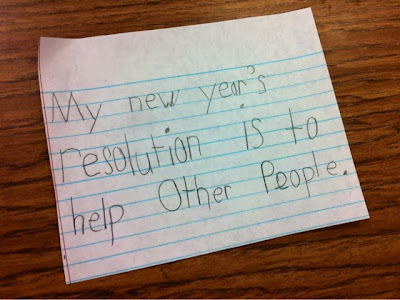 My new year's
resolution is to
help Other People.